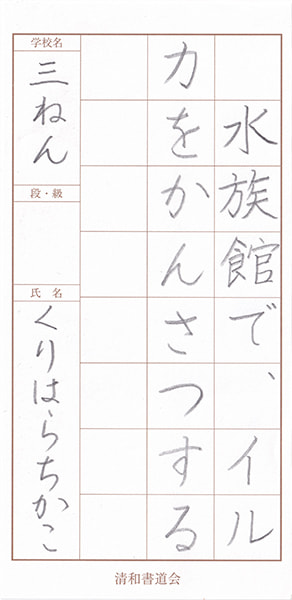 水族館で、イル
カをかんさつする
学校名
三ねん
段・級
氏名
くりはらちかこ
清和書道会